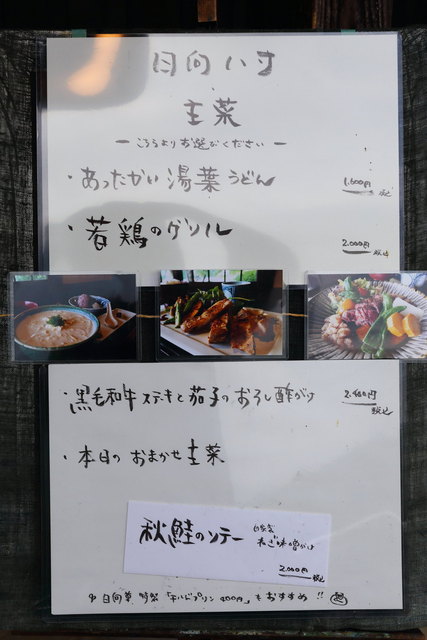 日向八寸
主菜
ー こちらよりお選びください ー
・あったかい湯葉うどん 1,600円 税込
・若鶏のグリル 2,000円 税込
・黒毛和牛ステーキと茄子のおろし酢がけ 税込
・本日の おまかせ主菜
秋鮭のソテー 自家製 ねぎ味噌がけ
2,000円 税込
日向夢 特製 プリン 400円」もおすすめ!!